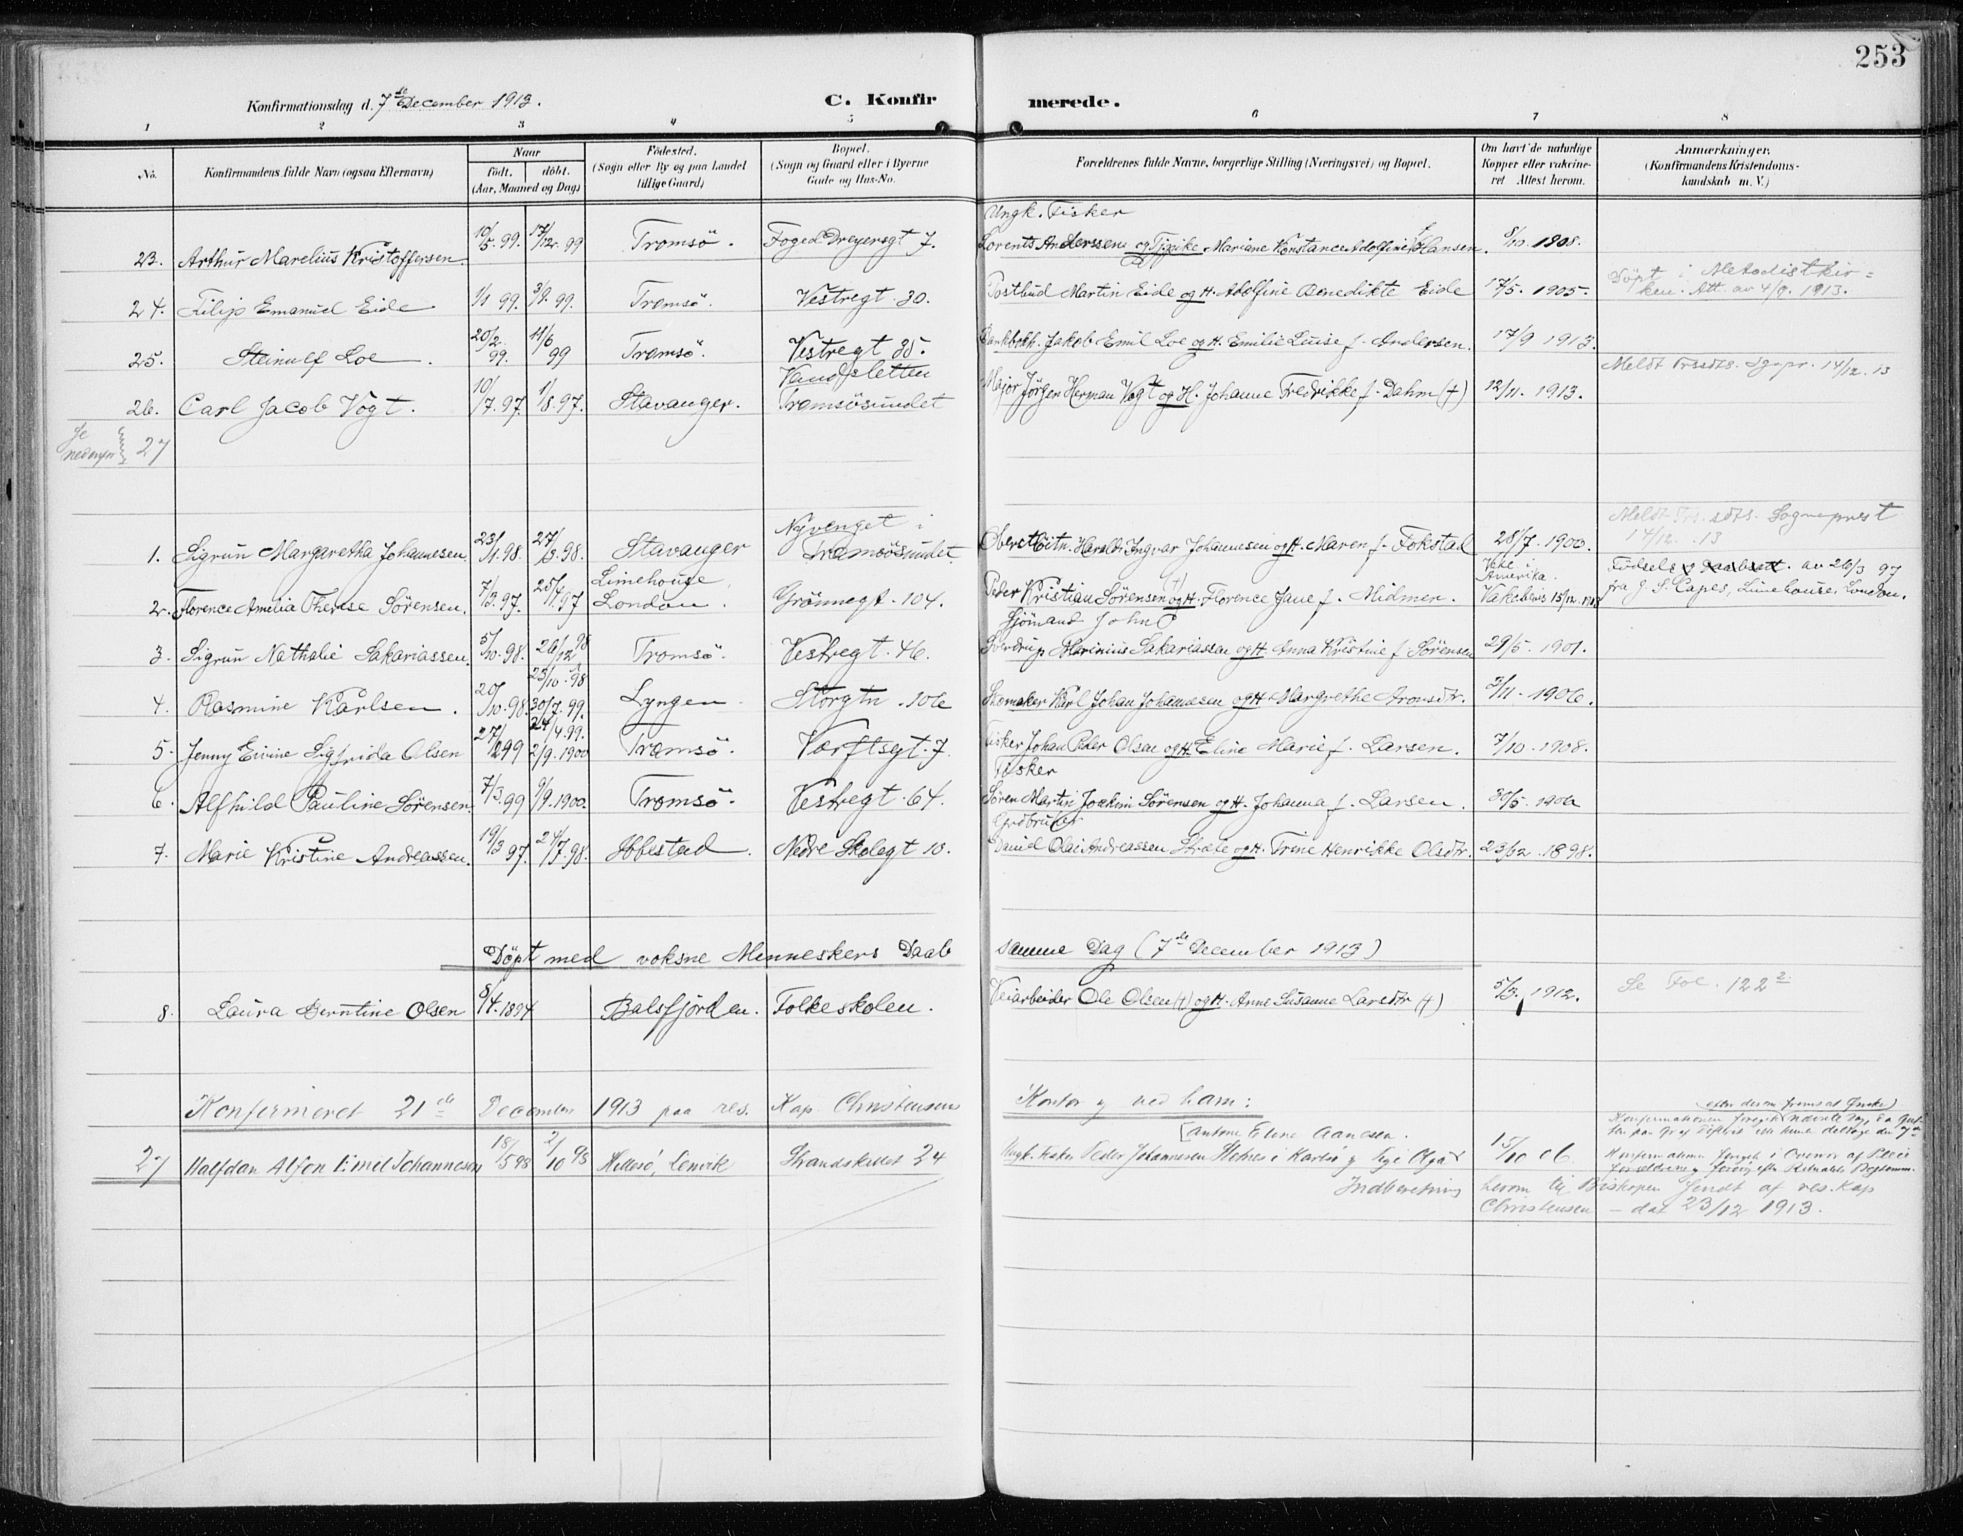 253
Konfirmationsdag d. 7de December 1913. C. Konfirmerede.
1 2 3 4 5 6 7 8
No. Konfirmandens fulde Navn (ogsaa Efternavn) Naar født. døbt. (Aar, Maaned og Dag) Fødested. (Sogn eller By og paa Landet tillige Gaard) Bopæl. (Sogn og Gaard eller i Byerne Gade og Hus-No. Forældrenes fulde Navne, borgerlige Stilling (Næringsvei) og Bopæl. Om havt de naturlige Kopper eller vakcineret Attest herom. Anmærkninger. (Konfirmandens Kristendomskundskab m. V.)
Ungk. Fisker
23. Arthur Marelius Kristoffersen 10/5. 99. 17/12. 99 Tromsö. Foged Dreyersgt 7. Lorents Anderssen og Pigike Mariane Konstance Adolfine Hansen. 8/10. 1908.
24. Filip Emanuel Eide 1/1 99. 3/9. 99. Tromsö. Vestregt. 30. Postbud Martin Eide og H. Adolfine Benedikte Eide 17/5. 1905. Döpt i Metodistkirken. Att. av 4/9. 1913.
25. Steinulf Loe. 20/2. 99. 11/6 99 Tromsö. Vestregt 35. Bankbokh. Jakob Emil Loe og H. Emilie Luise f. Andersen. 17/9 1913.
26. Carl Jacob Vogt. 10/7. 97. 1/8. 97. Stavanger. Tromsösundet Major Jörgen Herman Vogt og H. Johanne Fredrikke f. Dahm (+) 12/11. 1913. Meldt Trsdts. Sgnpr. 14/12. 13
Se nedenfor 27
1. Sigrun Margaretha Johannesen. 23/1. 98. 27/3. 98. Stavanger Nyvenget i Tromsösundet. Oberstltn. Harald Ingvar Johannesen og H. Maren f. Fokstad 28/7. 1900. Meldt Trs. sdts. Sogneprest 14/12. 13
2. Florence Amelia Therese Sörensen. 7/3. 97. 25/11. 97 Limehouse, London. Grönnegt. 104. Peder Kristian Sörensen (+) og H. Florence Jane f. Midmer. Vakc. i Amerika. Födsels & Daabsatt. av 26/3 97 fra J. S. Capes, Limehouse, London.
Sjömand John
3. Sigrun Nathalie Sakariassen. 5/10. 98. 26/12 98 Tromsö. Vestregt. 46. Sverdrup Marinius Sakariassen og H. Anna Kristine f. Sörensen 29/5. 1901.
4. Rasmine Karlsen. 20/10. 98. 23/10. 98 30/7. 99. Lyngen Storgtn. 106 Skomaker Karl Johan Johannesen og H. Margrethe Aronsdtr. 3/11. 1906.
5. Jenny Elvine Sigfrida Olsen 27/2 99 24/4. 99. 2/9. 1900 Tromsö. Værftsgt. 7. Fisker Johan Peder Olsen og H. Eline Marie f. Larsen. 7/10. 1908.
Fisker
6. Alfhild Pauline Sörensen. 7/3. 99 9/9. 1900. Tromsö. Vestregt. 64. Sören Martin Joakim Sörensen og H. Johanna f. Larsen. 30/5. 1906
Grdbruker
7. Marie Kristine Andreassen. 19/3 97. 24/7. 98. Ibbestad. Nedre Skolegt 10. Daniel Olai Andreassen Stræte og H. Trine Henrikke Olsdtr. 23/12. 1898.
Döpt med voksne Menneskers Daab samme Dag (7de December 1913)
8. Laura Berntine Olsen 8/4. 1894 Balsfjorden. Folkeskolen. Veiarbeider Ole Olsen (+) og H. Anne Susanne Larsdtr (+) 5/3. 1912. Se Fol. 122 2.
Konfirmeret 21de December 1913 paa res. Kap. Christensens Kontor og ved ham:
Antone Eline Aanesen.
27 Halfdan Alfon Emil Johannesen 18/5 98 2/10 98 Hillesö, Lenvik Strandskillet 24 Peder Johannesen 15/10 06.
Indberetning herom til Biskopen sendt af res. Kap Christensen – dat 23/12 1913.